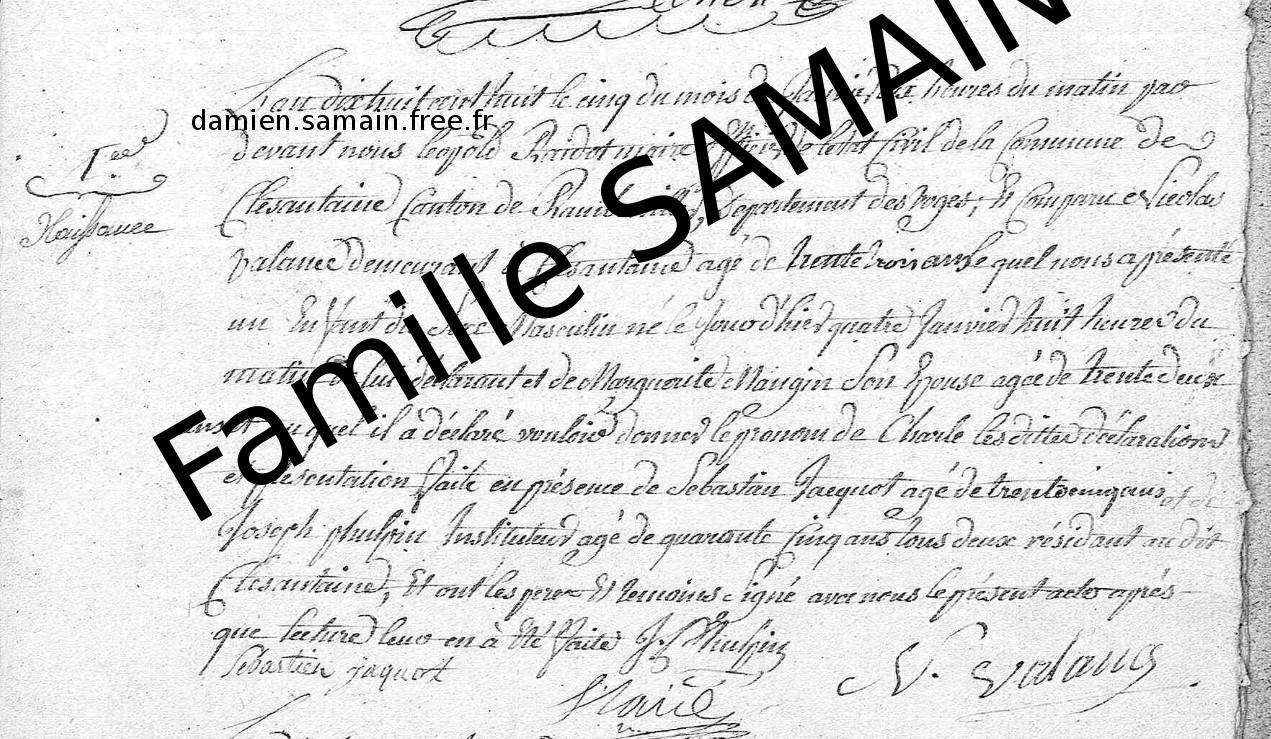 L'an dix huit cent huit le cinq du mois de Janvier dix heures du matin par
damien.samain.free.fr
devant nous Léopold Raidot maire officier de l'état Civil de la Commune de
1.ere
Naissance
Clesantaine Canton de Rambervillers Département des Voges, Est Comparu Nicolas
Valance demeurant à Clesantaine agé de trente trois ans le quel nous a présenté
un Enfant du Sexe Masculin né le Jour d'hier quatre Janvier huit heures du
matin de lui déclarant et de Marguerite Mangin Son Epouse agée de trente deux
ans et au quel il a déclaré vouloir donner le prenom de Charle les dittes déclaration
et présentation faite en présence de Sebastian Jacquot agé de trente cinq ans et de
Joseph phulpin Instituteur agé de quarante Cinq ans tous deux résidant au dit
Clesantaine, Et ont les pere Et temoins Signé avec nous le présent acte après
que lecture leur en à Eté faite J. Phulpin
Sebastien jaquot
N. Valance
Famille SAMAIN